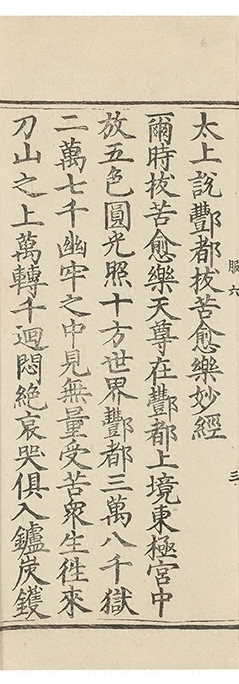 太上說酆都拔苦愈樂妙經
爾時拔苦愈樂天尊在酆都上境東極宮中
放五色圓光照十方世界酆都三萬八千獄
二萬七千幽牢之中見無量受苦眾生徃來
刀山之上萬轉千迴悶絕哀哭俱入鑪炭鑊
服六
三